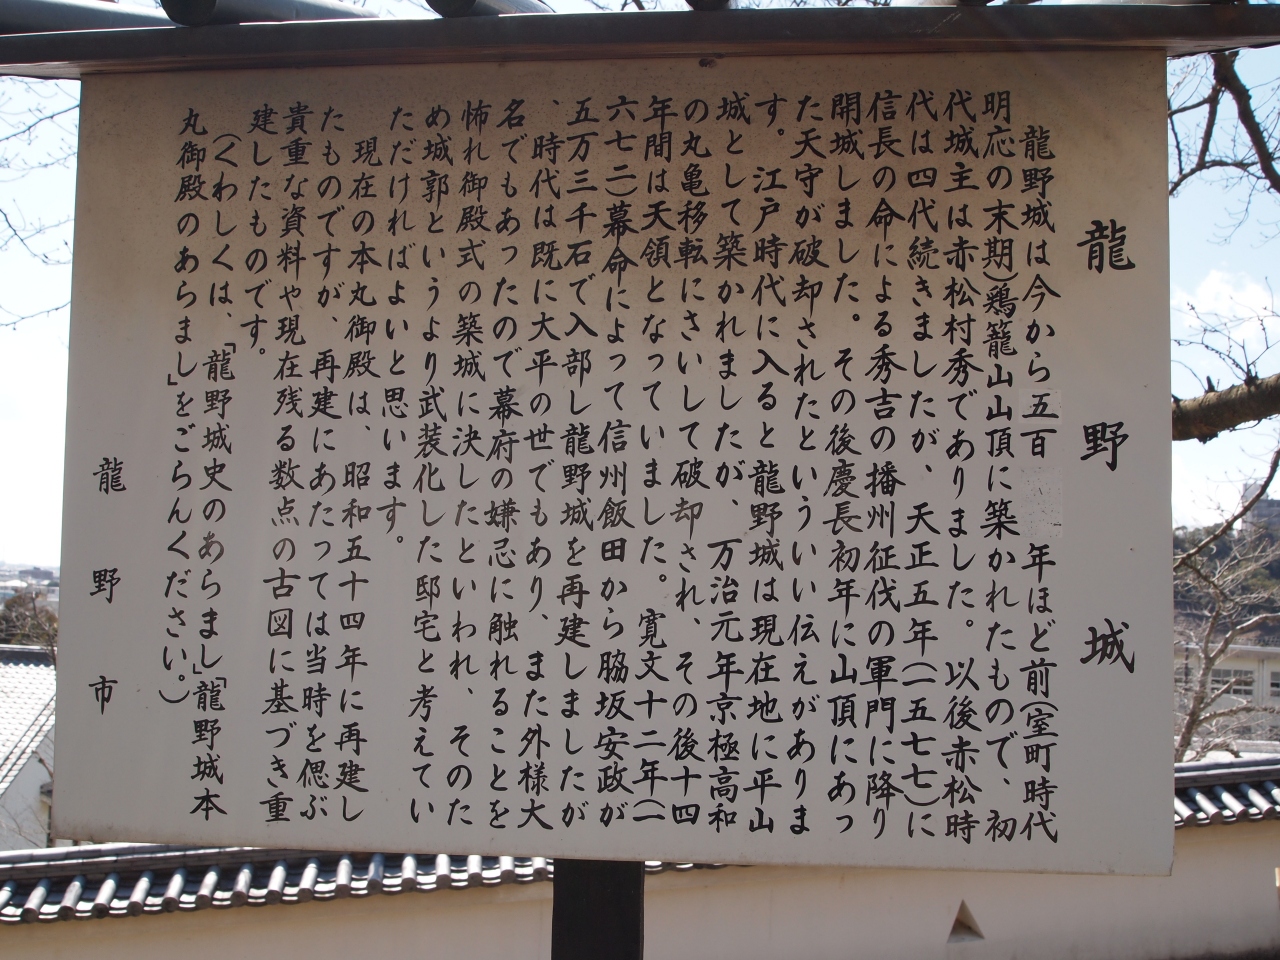 龍野城
龍野城は今から五百　年ほど前(室町時代
明応の末期)鶏籠山山頂に築かれたもので、初
代城主は赤松村秀でありました。以後赤松時
代は四代続きましたが、天正五年(一五七七)に
信長の命による秀吉の播州征伐の軍門に降り
開城しました。その後慶長初年に山頂にあっ
た天守が破却されたといういい伝えがありま
す。江戸時代に入ると龍野城は現在地に平山
城として築かれましたが、万治元年京極高和
の丸亀移転にさいして破却され、その後十四
年間は天領となっていました。寛文十二年(一
六七二)幕命によって信州飯田から脇坂安政が
五万三千石で入部し龍野城を再建しましたが
、時代は既に大平の世でもあり、また外様大
名でもあったので幕府の嫌忌に触れることを
怖れ御殿式の築城に決したといわれ、そのた
め城郭というより武装化した邸宅と考えてい
ただければよいと思います。
現在の本丸御殿は、昭和五十四年に再建し
たものですが、再建にあたっては当時を偲ぶ
貴重な資料や現在残る数点の古図に基づき重
建したものです。
(くわしくは、「龍野城史のあらまし」「龍野城本
丸御殿のあらまし」をごらんください。)
龍野市